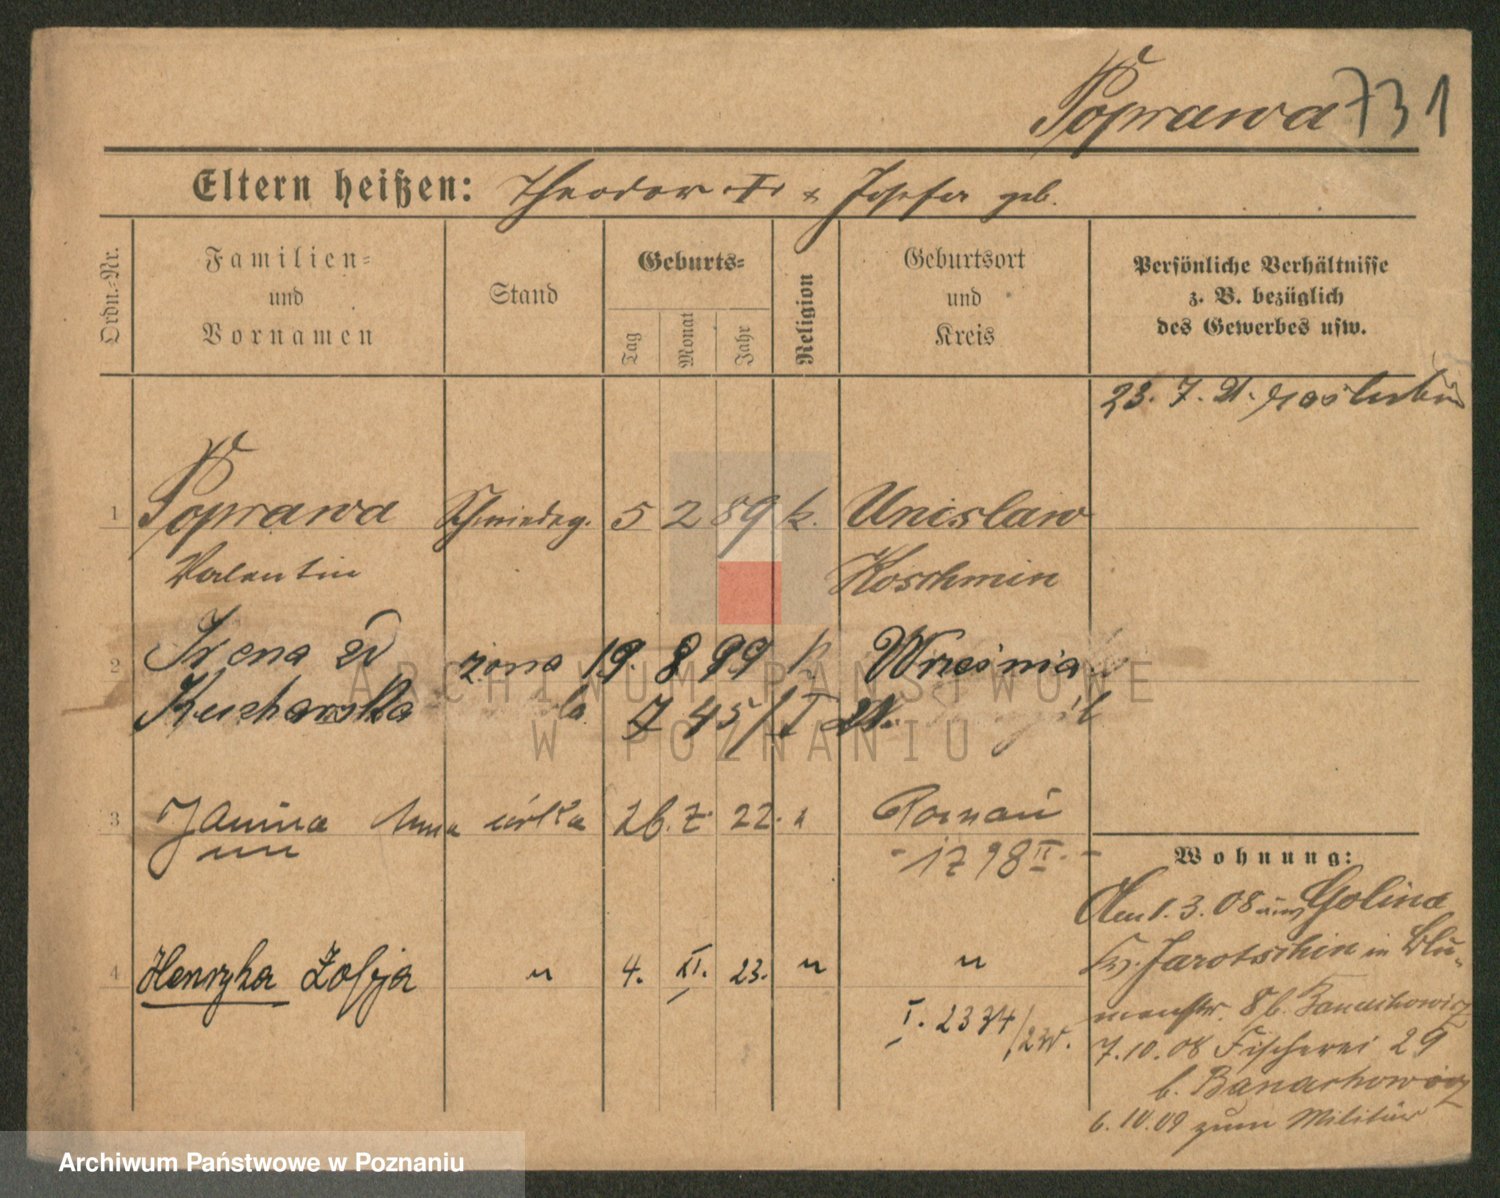 Poprawa 731
Eltern heißen: Theodor & Josefa geb.
Ordn.-Nr.
Familien-
und
Vornamen
Stand
Geburts-
Tag
Monat
Jahr
Religion
Geburtsort
und
Kreis
Persönliche Verhältnisse
z. B. bezüglich
des Gewerbes usw.
23. 7. 21.
1 Poprawa Schmiedeg. 5 2 89 k. Unislaw
Valentin Koschmin
2 Irena zd żona 19. 8 99 k Września
Kucharska
3 Janina Anna córka 26. 7. 22. " Poznań
- 1798 II. -
4 Henryka Zofja " 4. XI. 23. " "
I. 2334/23r.
Wohnung:
Am 1. 3. 08 aus Golina
Kr. Jarotschin in Blu-
menstr. 8 b. Banachowicz
7. 10. 08 Fischerei 29
b. Banachowicz
6. 10. 09 zum Militär
ARCHIWUM PAŃSTWOWE
W POZNANIU
Archiwum Państwowe w Poznaniu